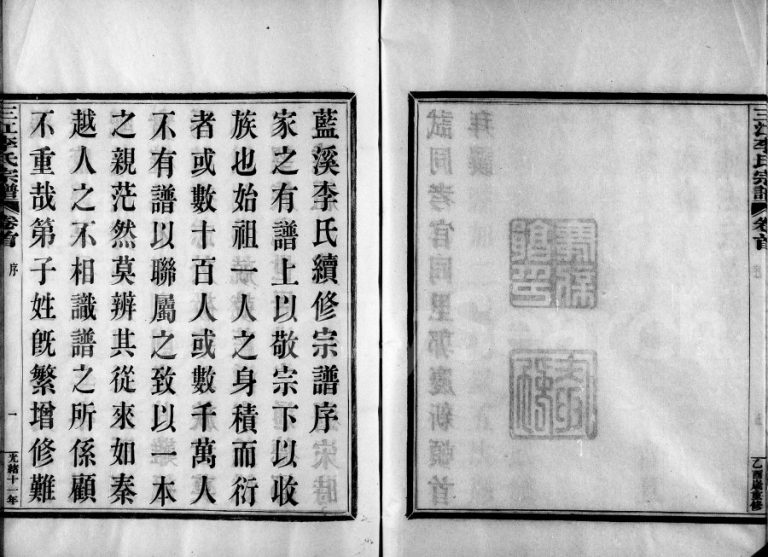 三江李氏宗譜 卷首
乙酉歲重修
試同考官同里郭慶新頓首
拜譔
藍溪李氏續修宗譜序
家之有譜上以敬宗下以收
族也始祖一人之身積而衍
者或數十百人或數千萬人
不有譜以聯屬之致以一本
之親茫然莫辨其從來如秦
越人之不相識譜之所係顧
不重哉第子姓旣繁增修難
三江李氏宗譜 卷首 序 一 光緒十一年